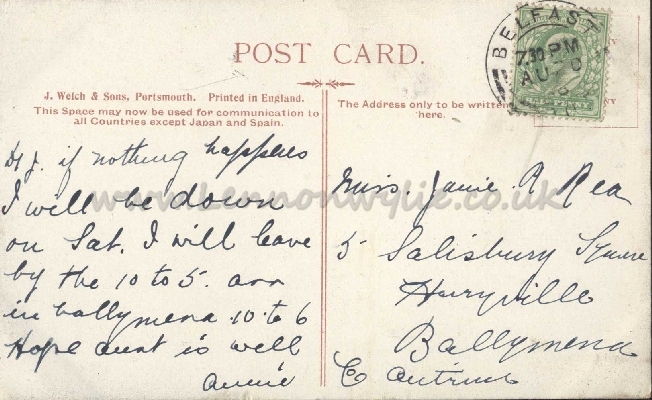 POST CARD.
J. Welch & Sons, Portsmouth. Printed in England.
This Space may now be used for communication to
all Countries except Japan and Spain.
The Address only to be written
here.
BELFAST
7.30 PM
AU
www.Lennonwylie.co.uk
Dr J. if nothing happens
I will be down
on Sat. I will leave
by the 10 to 5. arr
in ballymena 10 to 6
Hope aunt is well
Annie
Miss. Janie R Rea
5 Salisbury Square
Harryville
Ballymena
Co Antrim